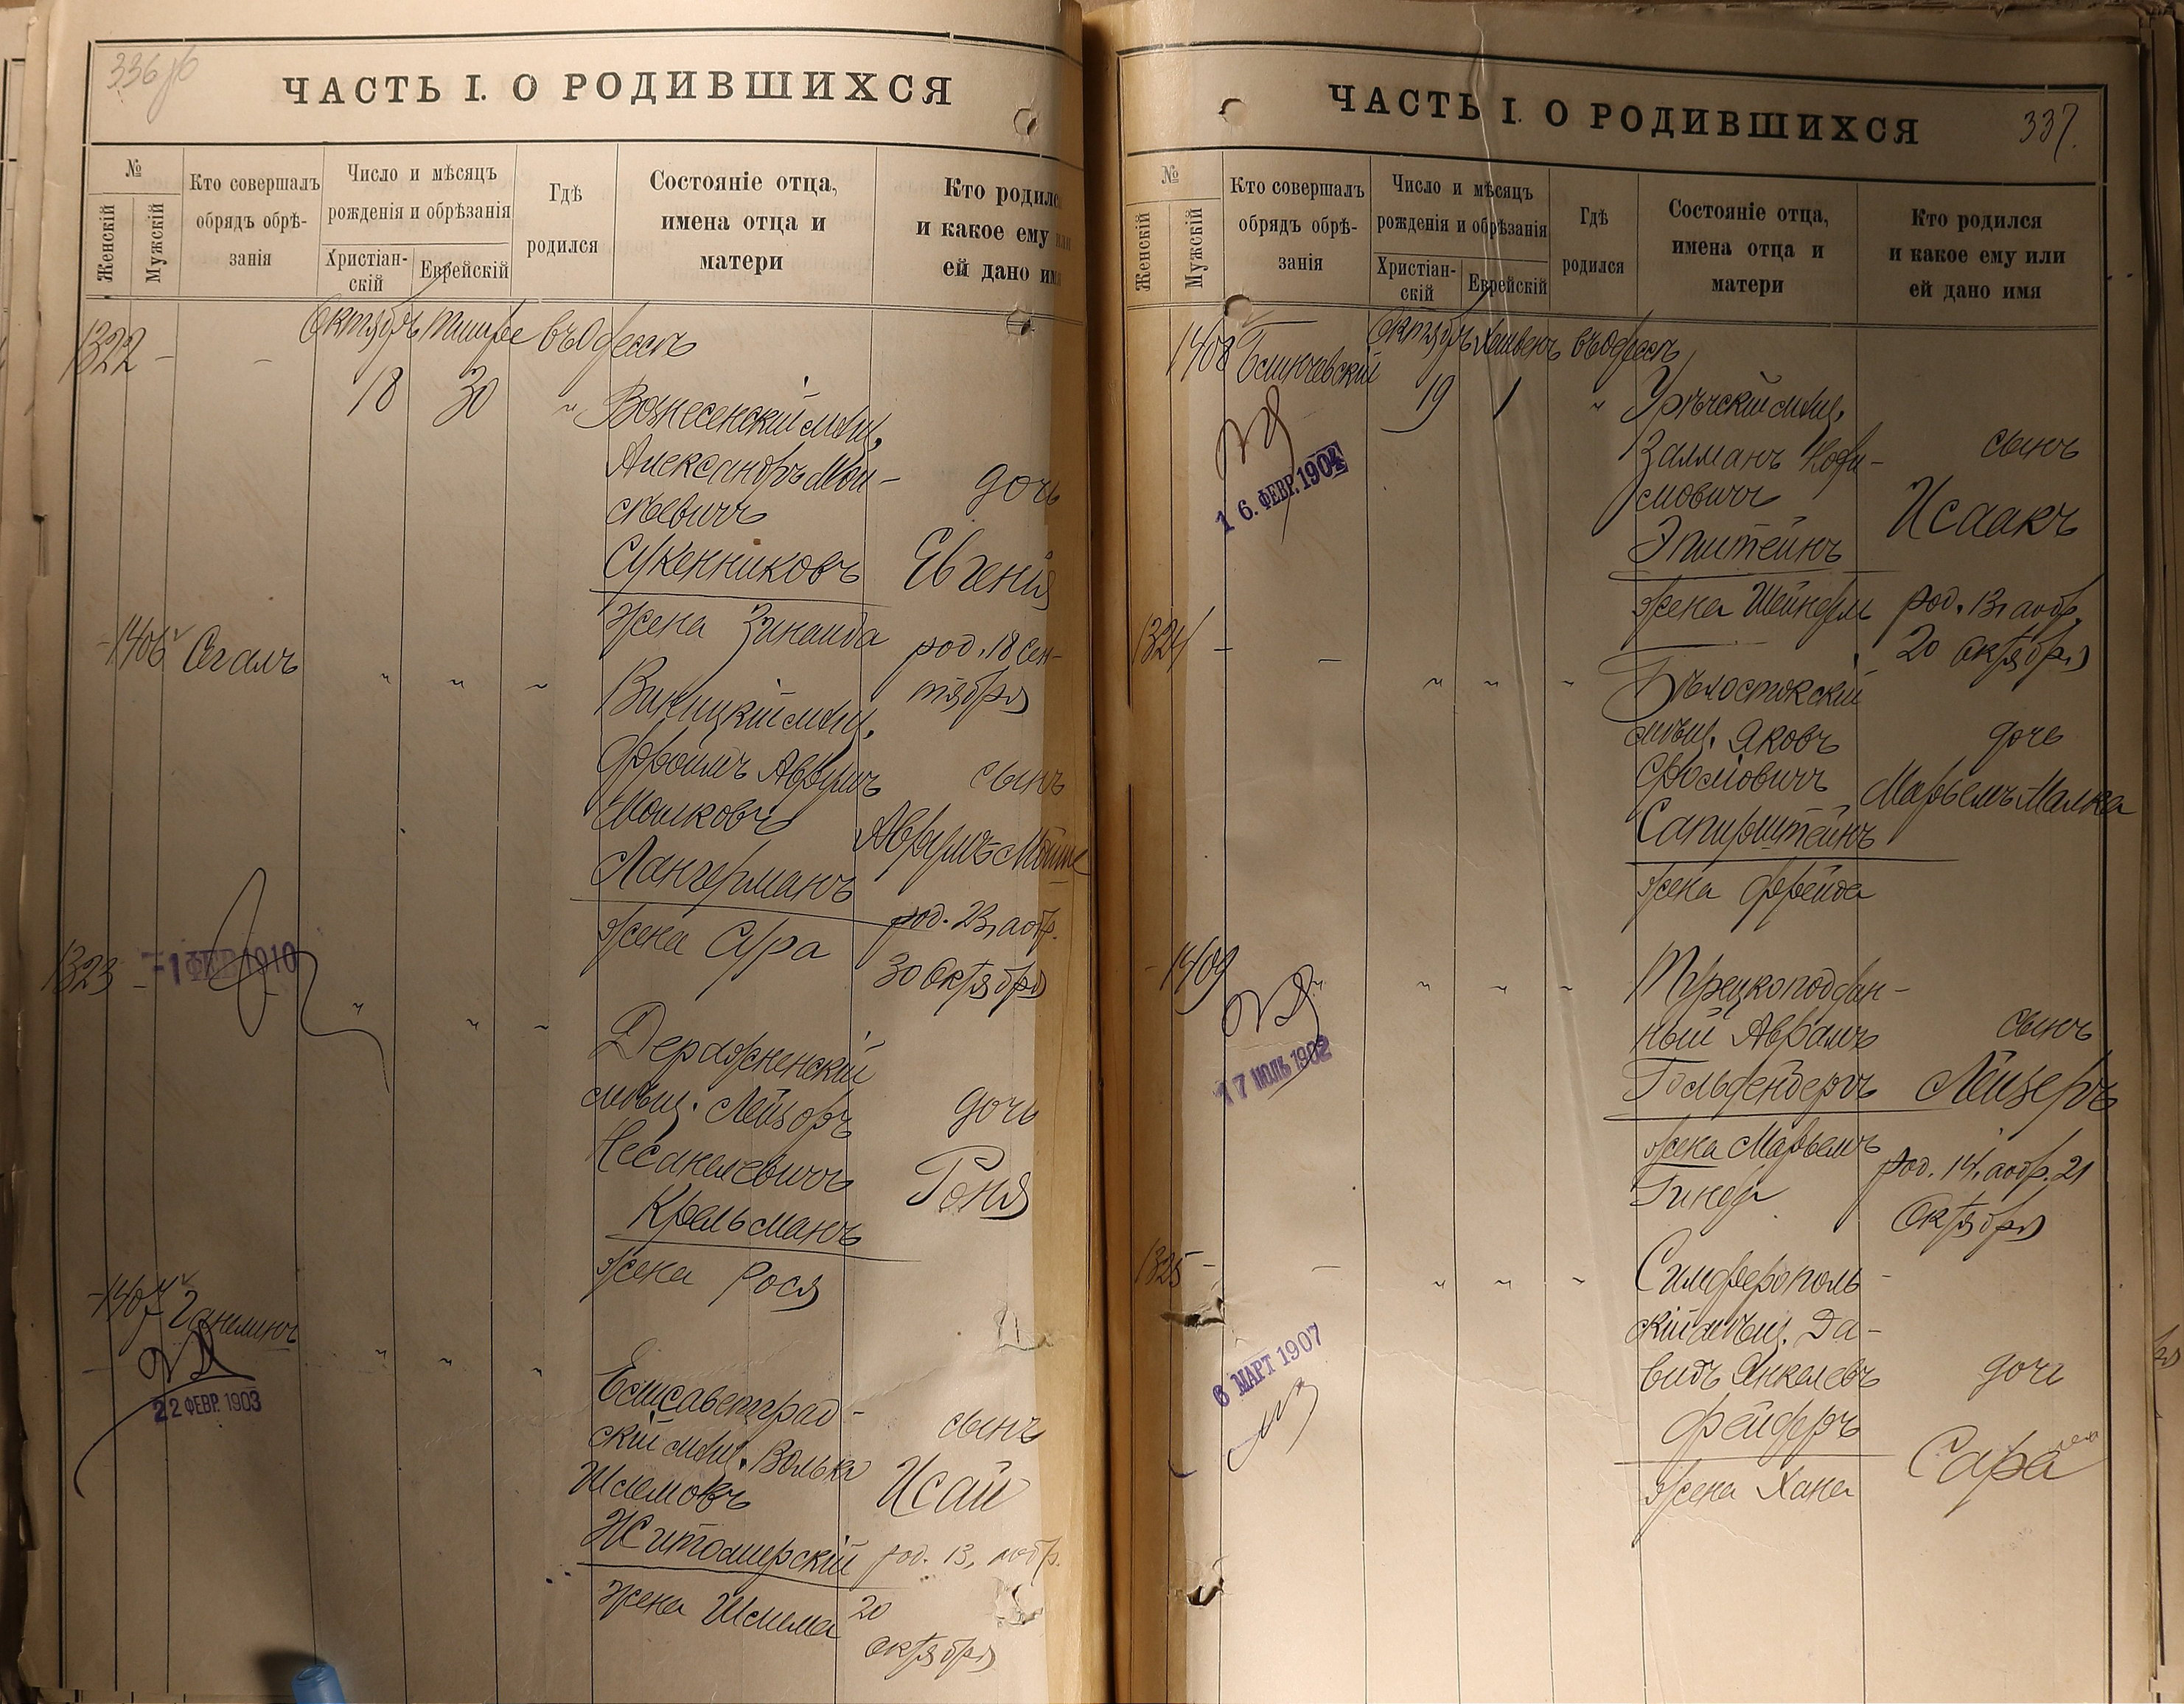 336 об
ЧАСТЬ I. О РОДИВШИХСЯ
№
Женскій
Мужскій
Кто совершалъ
обрядъ обрѣ-
занія
Число и мѣсяцъ
рожденія и обрѣзанія
Христіан-
скій
Еврейскій
Гдѣ
родился
Состояніе отца,
имена отца и
матери
Кто родилс
и какое ему или
ей дано имя
1322 - -
Октябрь Тишре въ Одессѣ
18 30 "
Вознесенскій мѣщ.
Александръ Мои-
сѣевичъ
Сукенниковъ
жена Зинаида
дочь
Евгенія
род. 18 сен-
тября
- 1406 Сегалъ " " "
Виницкій мѣщ.
Фроимъ Аврумъ
Мошковъ
Лангерманъ
жена Сура
сынъ
Аврумъ Мойше
род. 23, аобр.
30 Октября
1323 - - " " "
-1 ФЕВ 1910
Деражненскій
мѣщ. Лейзоръ
Несанелевичъ
Крельманъ
жена Рося
дочь
Роня
- 1407 " " "
22 ФЕВР. 1903
Елисаветград-
скій мѣщ. Волько
Шлемовъ
Житомирскій
жена Шлима
сынъ
Исай
род. 13, аобр.
20
октября
337.
ЧАСТЬ I. О РОДИВШИХСЯ
№
Женскій
Мужскій
Кто совершалъ
обрядъ обрѣ-
занія
Число и мѣсяцъ
рожденія и обрѣзанія
Христіан-
скій
Еврейскій
Гдѣ
родился
Состояніе отца,
имена отца и
матери
Кто родился
и какое ему или
ей дано имя
1408 Блинчевскій
Октябрь Хешвенъ въ Одессѣ
19 1 "
16. ФЕВР. 1904
мѣщ.
Залманъ
Эпштейнъ
жена Шейндля
сынъ
Исаакъ
род. 13, аобр.
20 Октября
1324 - - " " "
Бѣлостокскій
мѣщ. Яковъ
Сапирштейнъ
жена Фрейда
дочь
Марьемъ Малка
- 1409 " " "
17 ИЮЛЬ 1902
Турецкоподдан-
ный Аврамъ
Гольденбергъ
жена Марьемъ
Гинда
сынъ
Лейзеръ
род. 14, аобр. 21
Октября
1325 - - " " "
6 МАРТ 1907
Симферополь-
скій мѣщ. Да-
видъ Янкелевъ
Фейферъ
жена Хана
дочь
Сара